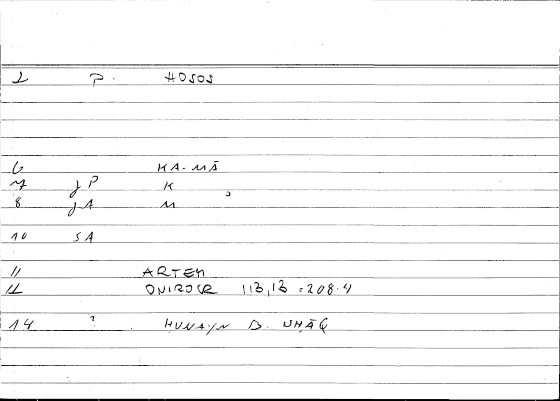 2 P. HOSOS
6 KA-MĀ
7 JP K
8 JA M
10 SA
11 ARTEM
12 ONIROCR 113,13 = 208.4
14 ? HUNAYN B. ISḤĀQ